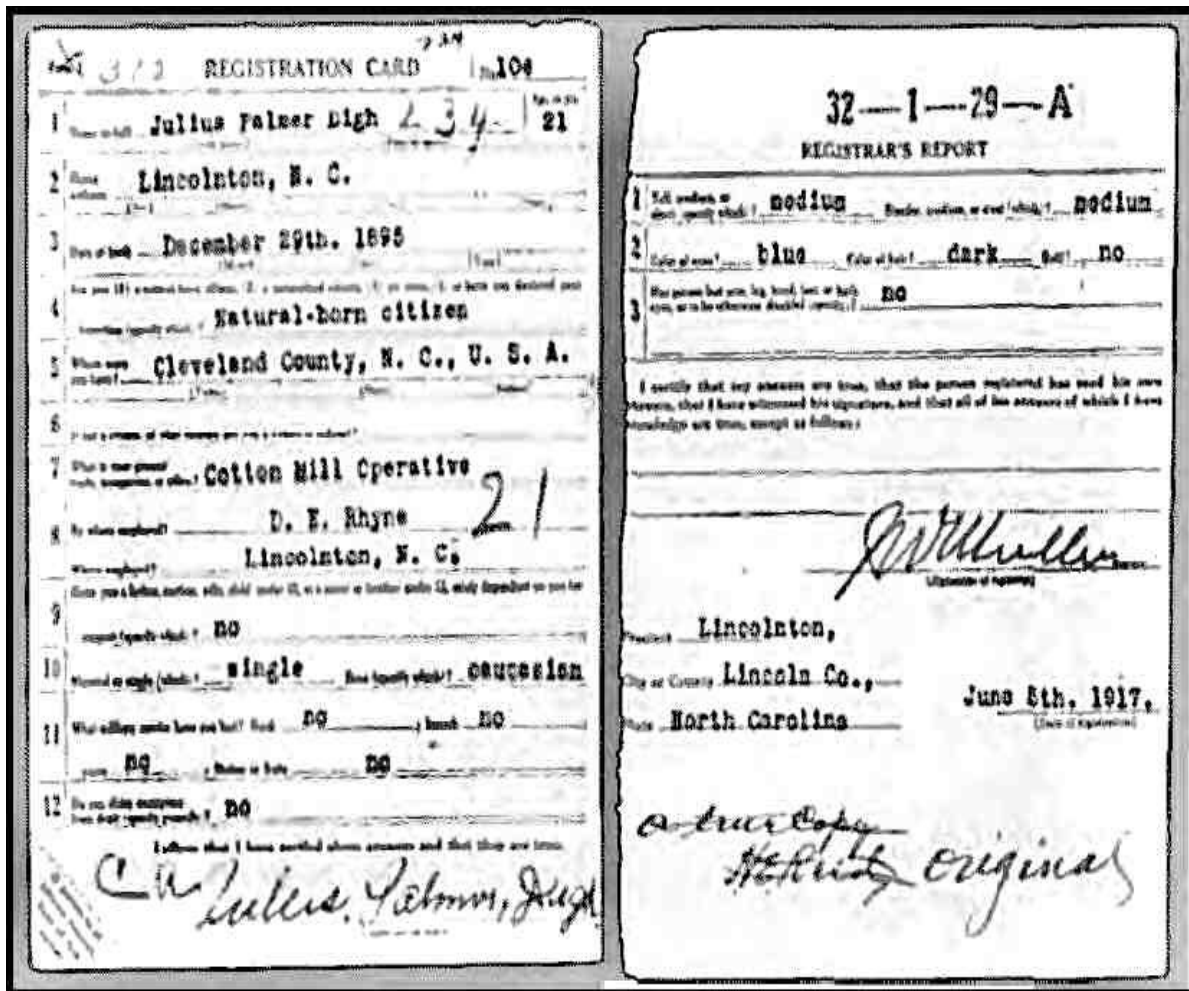 312 REGISTRATION CARD 234 No. 104
1 Name in full Julius Palmer Digh 234 Age, in yrs. 21
2 Home address Lincolnton, N. C.
3 Date of birth December 29th. 1895
4 Natural-born citizen
5 Where were you born? Cleveland County, N. C., U. S. A.
6
7 What is your present trade, occupation, or office? Cotton Mill Operative
8 By whom employed? D. E. Rhyne 21
Where employed? Lincolnton, N. C.
9 no
10 Married or single (which)? single Race (specify which)? caucasion
11 What military service have you had? Rank no ; branch no
years no ; Nation or State no
12 Do you claim exemption from draft (specify grounds)? no
I affirm that I have verified above answers and that they are true.
Julius, Palmer, Digh
32—1—29—A
REGISTRAR'S REPORT
1 Tall, medium, or short (specify which)? medium Slender, medium, or stout (which)? medium
2 Color of eyes? blue Color of hair? dark Bald? no
3 Has person lost arm, leg, hand, foot, or both eyes, or is he otherwise disabled (specify)? no
I certify that my answers are true, that the person registered has read his own
answers, that I have witnessed his signature, and that all of his answers of which I have
knowledge are true, except as follows:
(Signature of registrar)
Precinct Lincolnton,
City or County Lincoln Co.,
State North Carolina
June 5th, 1917,
(Date of registration)
a true Copy
original